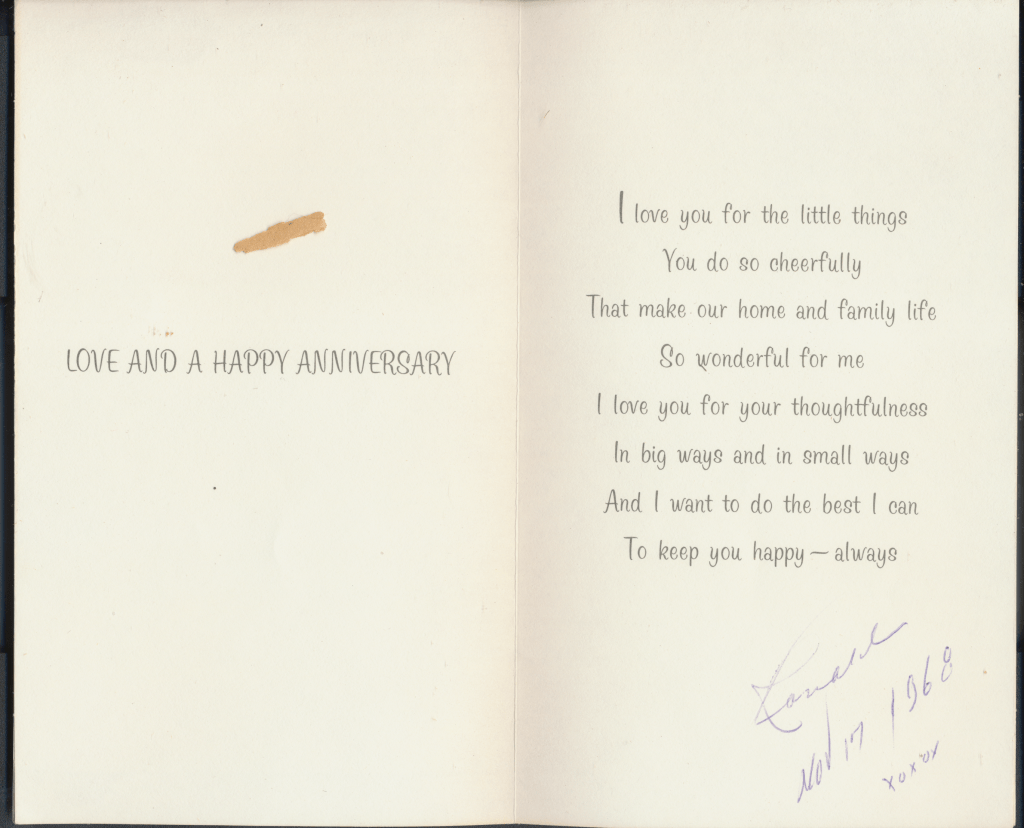 LOVE AND A HAPPY ANNIVERSARY
I love you for the little things
You do so cheerfully
That make our home and family life
So wonderful for me
I love you for your thoughtfulness
In big ways and in small ways
And I want to do the best I can
To keep you happy — always
Ronald
Nov 17 1968
xoxox